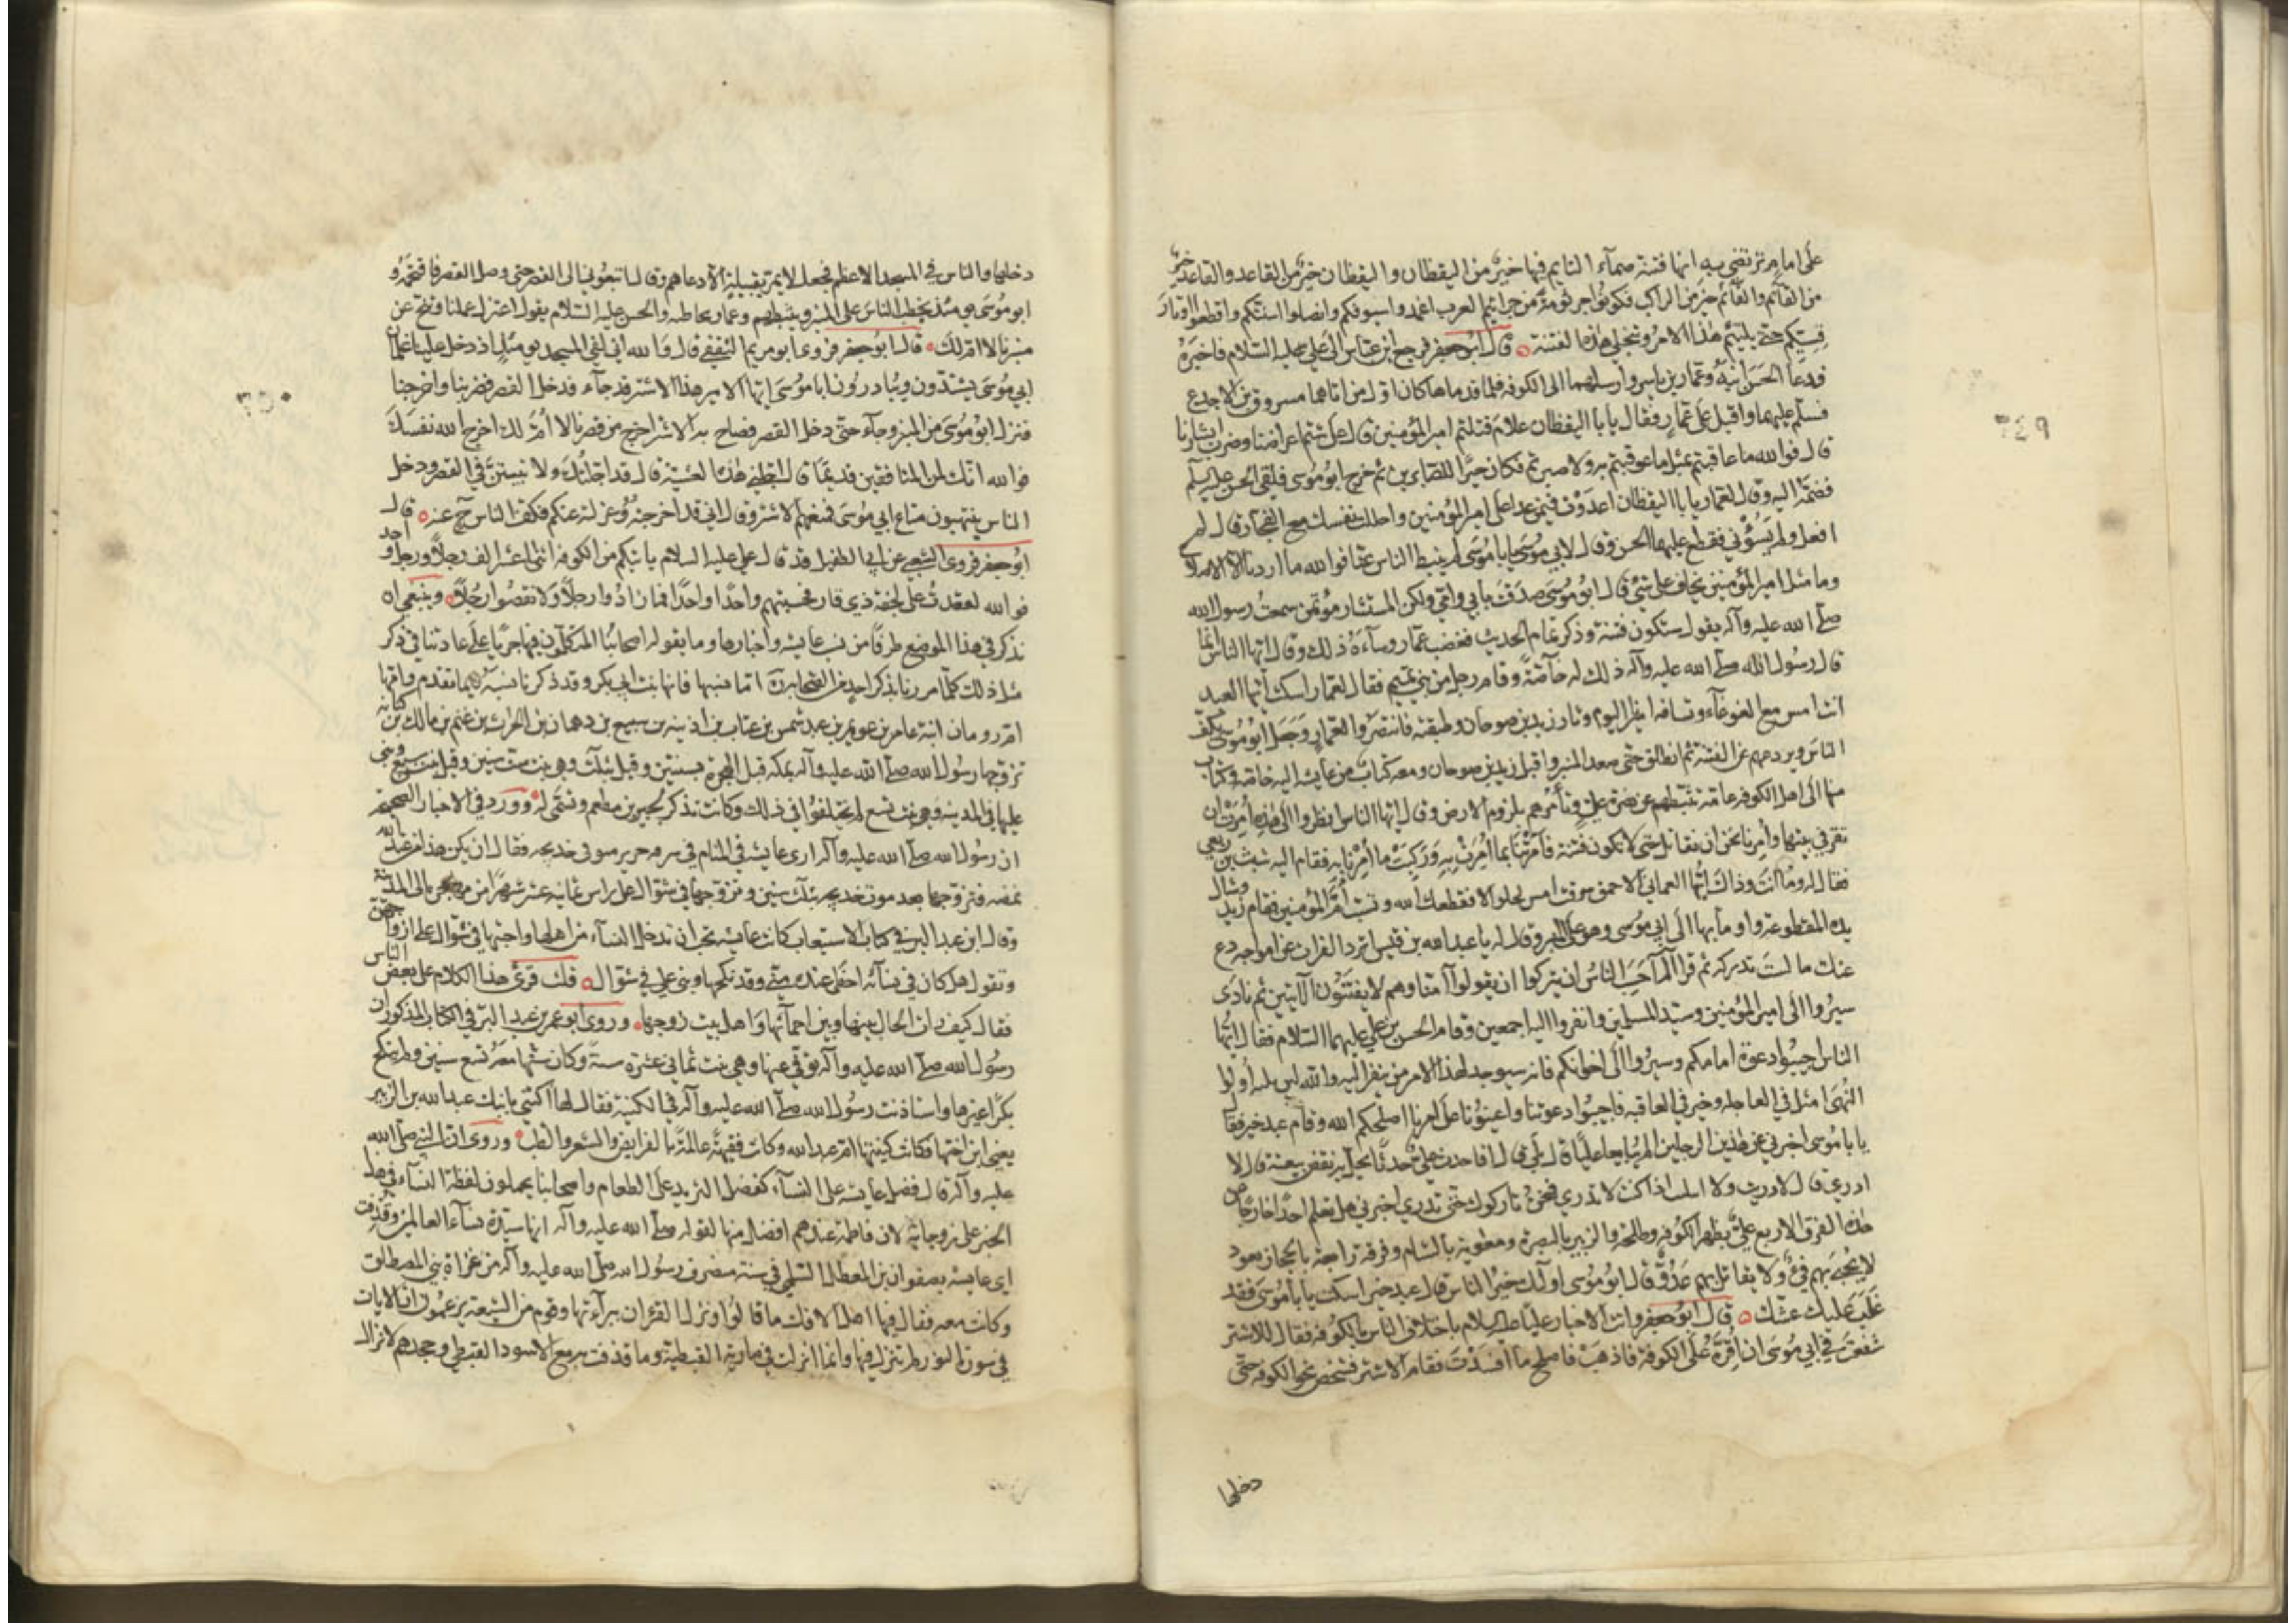 على امام ترتضي به انها فتنة صماء النايم فيها خير من اليقظان واليقظان خير من القاعد والقاعد خير
من القائم والقائم خير من الراكب فكونوا جرثومة من جراثيم العرب اغمدوا سيوفكم وانصلوا اسنتكم واقطعوا اوتار
قسيكم حتى يلتئم هذا الامر وتنجلي هذه الفتنة قال ابو جعفر فرجع ابن عباس الى علي عليه السلام فاخبره
فدعا الحسن ابنه وعمار بن ياسر وارسلهما الى الكوفة فلما قدماها كان اول من اتاهما مسروق بن الاجدع
فسلم عليهما واقبل على عمار فقال يا ابا اليقظان علام قتلتم امير المؤمنين قال على شتم اعراضنا وضرب ابشارنا
قال فوالله ما عاقبتم بمثل ما عوقبتم به ولا صبرتم فكان خيرا للصابرين ثم خرج ابو موسى فلقي الحسن عليه السلم
فضمه اليه وقال لعمار يا ابا اليقظان اعدوت فيمن عدا على امير المؤمنين واحللت نفسك مع الفجار قال لم
افعل ولم تسؤني فقطع عليهما الحسن وقال لابي موسى يا ابا موسى لم تثبط الناس عنا فوالله ما اردنا الا الاصلاح
وما مثل امير المؤمنين يخاف على شئ قال ابو موسى صدقت بابي وامي ولكن المستشار مؤتمن سمعت رسول الله
صلى الله عليه وآله يقول ستكون فتنة وذكر تمام الحديث فغضب عمار وساءه ذلك وقال ايها الناس انما
قال رسول الله صلى الله عليه وآله ذلك له خاصة وقام رجل من بني تميم فقال لعمار اسكت ايها العبد
انت امس مع الغوغاء وتسافه اميرنا اليوم وثار زيد بن صوحان وطبقته فانتصروا لعمار وجعل ابو موسى يكف
الناس ويردعهم عن الفتنة ثم انطلق حتى صعد المنبر واقبل زيد بن صوحان ومعه كتاب من عايشة اليه خاصة وكتاب
منها الى اهل الكوفة عامة تثبطهم عن نصرة علي وتأمرهم بلزوم الارض وقال ايها الناس انظروا الى هذه أمرت ان
تقر في بيتها وأمرنا نحن ان نقاتل حتى لا تكون فتنة فأمرتنا بما أمرت به وركبت ما أمرنا به فقام اليه شبث بن ربعي
فقال له وما انت وذاك ايها العماني الاحمق سرقت امس بجلولا فقطعك الله وتسب ام المؤمنين فقام زيد وشال
يده المقطوعة واومأ بها الى ابي موسى وهو على المنبر وقال له يا عبد الله بن قيس اترد الفرات عن امواجه دع
عنك ما لست تدركه ثم قرأ الم احسب الناس ان يتركوا ان يقولوا آمنا وهم لا يفتنون الآيتين ثم نادى
سيروا الى امير المؤمنين وسيد المسلمين وانفروا اليه اجمعين وقام الحسن بن علي عليهما السلام فقال ايها
الناس اجيبوا دعوة امامكم وسيروا الى اخوانكم فانه سيوجد لهذا الامر من ينفر اليه والله لئن يليه أولوا
النهى امثل في العاجلة وخير في العاقبة فاجيبوا دعوتنا واعينونا على امرنا اصلحكم الله وقام عبد خير فقال
يا ابا موسى اخبرني عن هذين الرجلين الم يبايعا عليا قال بلى قال افاحدث علي حدثا يحل به نقض بيعته قال لا
ادري قال لا دريت ولا اتيت اذا كنت لا تدري فنحن تاركوك حتى تدري اخبرني هل تعلم احدا خارجا من
هذه الفرق الاربع علي بظهر الكوفة وطلحة والزبير بالبصرة ومعوية بالشام وفرقة رابعة بالحجاز قعود
لا يجبى بهم فئ ولا يقاتل بهم عدو قال ابو موسى اولئك خير الناس قال عبد خير اسكت يا ابا موسى فقد
غلب عليك غشك قال ابو جعفر واتت الاخبار عليا عليه السلام باختلاف الناس بالكوفة فقال للاشتر
شفعت في ابي موسى ان أقره على الكوفة فاذهب فاصلح ما افسدت فقام الاشتر فشخص نحو الكوفة حتى
دخلها
٦٤٩
دخلها والناس في المسجد الاعظم فجعل لا يمر بقبيلة الا دعاهم وقال اتبعوني الى القصر حتى وصل القصر فاقتحمه و
ابو موسى يومئذ يخطب الناس على المنبر ويثبطهم وعمار يخاطبه والحسن عليه السلام يقول اعتزل عملنا وتنح عن
منبرنا لا ام لك قال ابو جعفر فروى ابو مريم الثقفي قال والله اني لفي المسجد يومئذ اذ دخل علينا غلمان
ابي موسى يشتدون ويبادرون ابا موسى ايها الامير هذا الاشتر قد جاء فدخل القصر فضربنا واخرجنا
فنزل ابو موسى من المنبر وجاء حتى دخل القصر فصاح به الاشتر اخرج من قصرنا لا ام لك اخرج الله نفسك
فوالله انك لمن المنافقين قديما قال اجلني هذه العشية قال قد اجلتك ولا تبيتن في القصر ودخل
الناس ينتهبون متاع ابي موسى فمنعهم الاشتر وقال اني قد اخرجته وعزلته عنكم فكف الناس ح عنه قال
ابو جعفر فروى الشعبي عن ابي الطفيل قد قال علي عليه السلام يأتيكم من الكوفة اثنى عشر الف رجلا ورجل واحد
فوالله لقعدت على نجفة ذي قار فحسبتهم واحدا واحدا فما زادوا رجلا ولا نقصوا رجلا وينبغي ان
نذكر في هذا الموضع طرفا من نسب عايشة واخبارها وما يقوله اصحابنا المتكلمون فيها جريا على عادتنا في ذكر
مثل ذلك كلما مررنا بذكر احد من الصحابة اما نسبها فانها بنت ابي بكر وقد ذكرنا نسبه فيما تقدم وامها
ام رومان ابنة عامر بن عويمر بن عبد شمس بن عتاب بن اذينة بن سبيع بن دهمان بن الحرث بن غنم بن مالك بن كنانة
تزوجها رسول الله صلى الله عليه وآله بمكة قبل الهجرة بسنتين وقيل بثلث وهي بنت ست سنين وقيل بنت سبع وبنى
عليها في المدينة وهي بنت تسع لم يختلفوا في ذلك وكانت تذكر لجبير بن مطعم وتسمى له وورد في الاخبار الصحيحة
ان رسول الله صلى الله عليه وآله ارى عايشة في المنام في سرقة حرير متوفى خديجة فقال ان يكن هذا من عند الله
يمضه فتزوجها بعد موت خديجة بثلث سنين وتزوجها في شوال على رأس ثمانية عشر شهرا من مهاجره الى المدينة
وقال ابن عبد البر في كتاب الاستيعاب كانت عايشة تحب ان تدخل النساء من اهلها واحبتها في شوال على ازواجهن
وتقول هل كان في نسائه احظى عنده مني وقد نكحها وبنى علي في شوال قلت قرئ هذا الكلام على بعض الناس
فقال كيف رأت الحال بينها وبين احمائها واهل بيت زوجها وروى ابو عمر بن عبد البر في الكتاب المذكور ان
رسول الله صلى الله عليه وآله توفي عنها وهي بنت ثماني عشرة سنة وكان سنها معه تسع سنين ولم ينكح
بكرا غيرها واستأذنت رسول الله صلى الله عليه وآله في الكنية فقال لها اكتني بابنك عبد الله بن الزبير
يعني ابن اختها فكانت كنيتها ام عبد الله وكانت فقيهة عالمة بالفرايض والشعر والطب وروى ان النبي صلى الله
عليه وآله قال فضل عايشة على النساء كفضل الثريد على الطعام واصحابنا يحملون لفظة النساء في هذا
الخبر على زوجاته لان فاطمة عندهم افضل منها لقوله صلى الله عليه وآله انها سيدة نساء العالمين وقذفت
اي عايشة بصفوان بن المعطل السلمي في سنة منصرف رسول الله صلى الله عليه وآله من غزاة بني المصطلق
وكانت معه فقال فيها اهل الافك ما قالوا ونزل القرءان ببراءتها وقوم من الشيعة يزعمون ان الايات
في سورة النور لم تنزل فيها وانما انزلت في مارية القبطية وما قذفت به مع الاسود القبطي وجحدهم لانزال